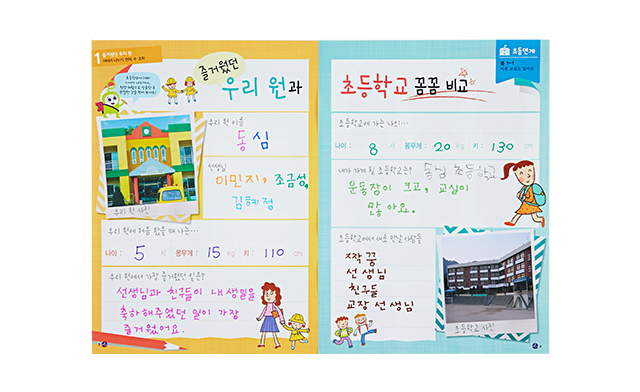 1 즐거웠던 우리 원
즐거웠던
우리 원과
우리 원 이름
동심
선생님
이민지, 조금성,
김혜정
우리 원 사진
우리 원에 처음 왔을 때 나는…
나이: 5 세 몸무게: 15 kg 키: 110 cm
우리 원에서 가장 즐거웠던 일은?
선생님과 친구들이 내 생일을
축하해주었던 일이 가장
즐거웠어요.
초등연계
초등학교 꼼꼼 비교
초등학교에 가는 나의…
나이: 8 세 몸무게: 20 kg 키: 130 cm
내가 가게 될 초등학교는? 동심 초등학교
운동장이 크고, 교실이
많아요.
초등학교에서 새로 만날 사람들
짝꿍
선생님
친구들
교장 선생님
초등학교 사진